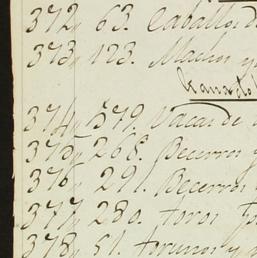 372, 63. Caballos d
373, 123. Macios y
Ganado
374, 579. Vacas de
375, 268. Becerros y
376, 291. Becerros
377, 280. toros
378, 51. torunos y